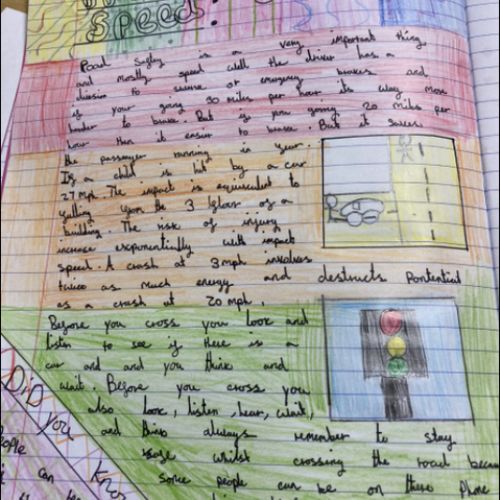 Speed!
Road Safley is a very important thing
and mostly speed well the driver has a
division to swerve or emergency brakes and
if your going 30 miles per hour its way more
harder to brake. But is you going 20 miles per
hour then it easier to brake. But it saves
the passenger running in year.
If a child is hit by a car
27 mph. The impact is equivelent to
falling upon the 3 floor of a
building. The risk of injury
increase exponentially with impact
speed. A crash at 3mph involves
twice as much energy and destructs pontential
as a crash at 20 mph.
Before you cross you look and
listen to see if there is a
car and and you think and
wait. Before you cross you
also look, listen, hear, wait,
and think always remember to stay
whilst crossing the road becau
some people can be on there phone
DiD you
know
eople
t can